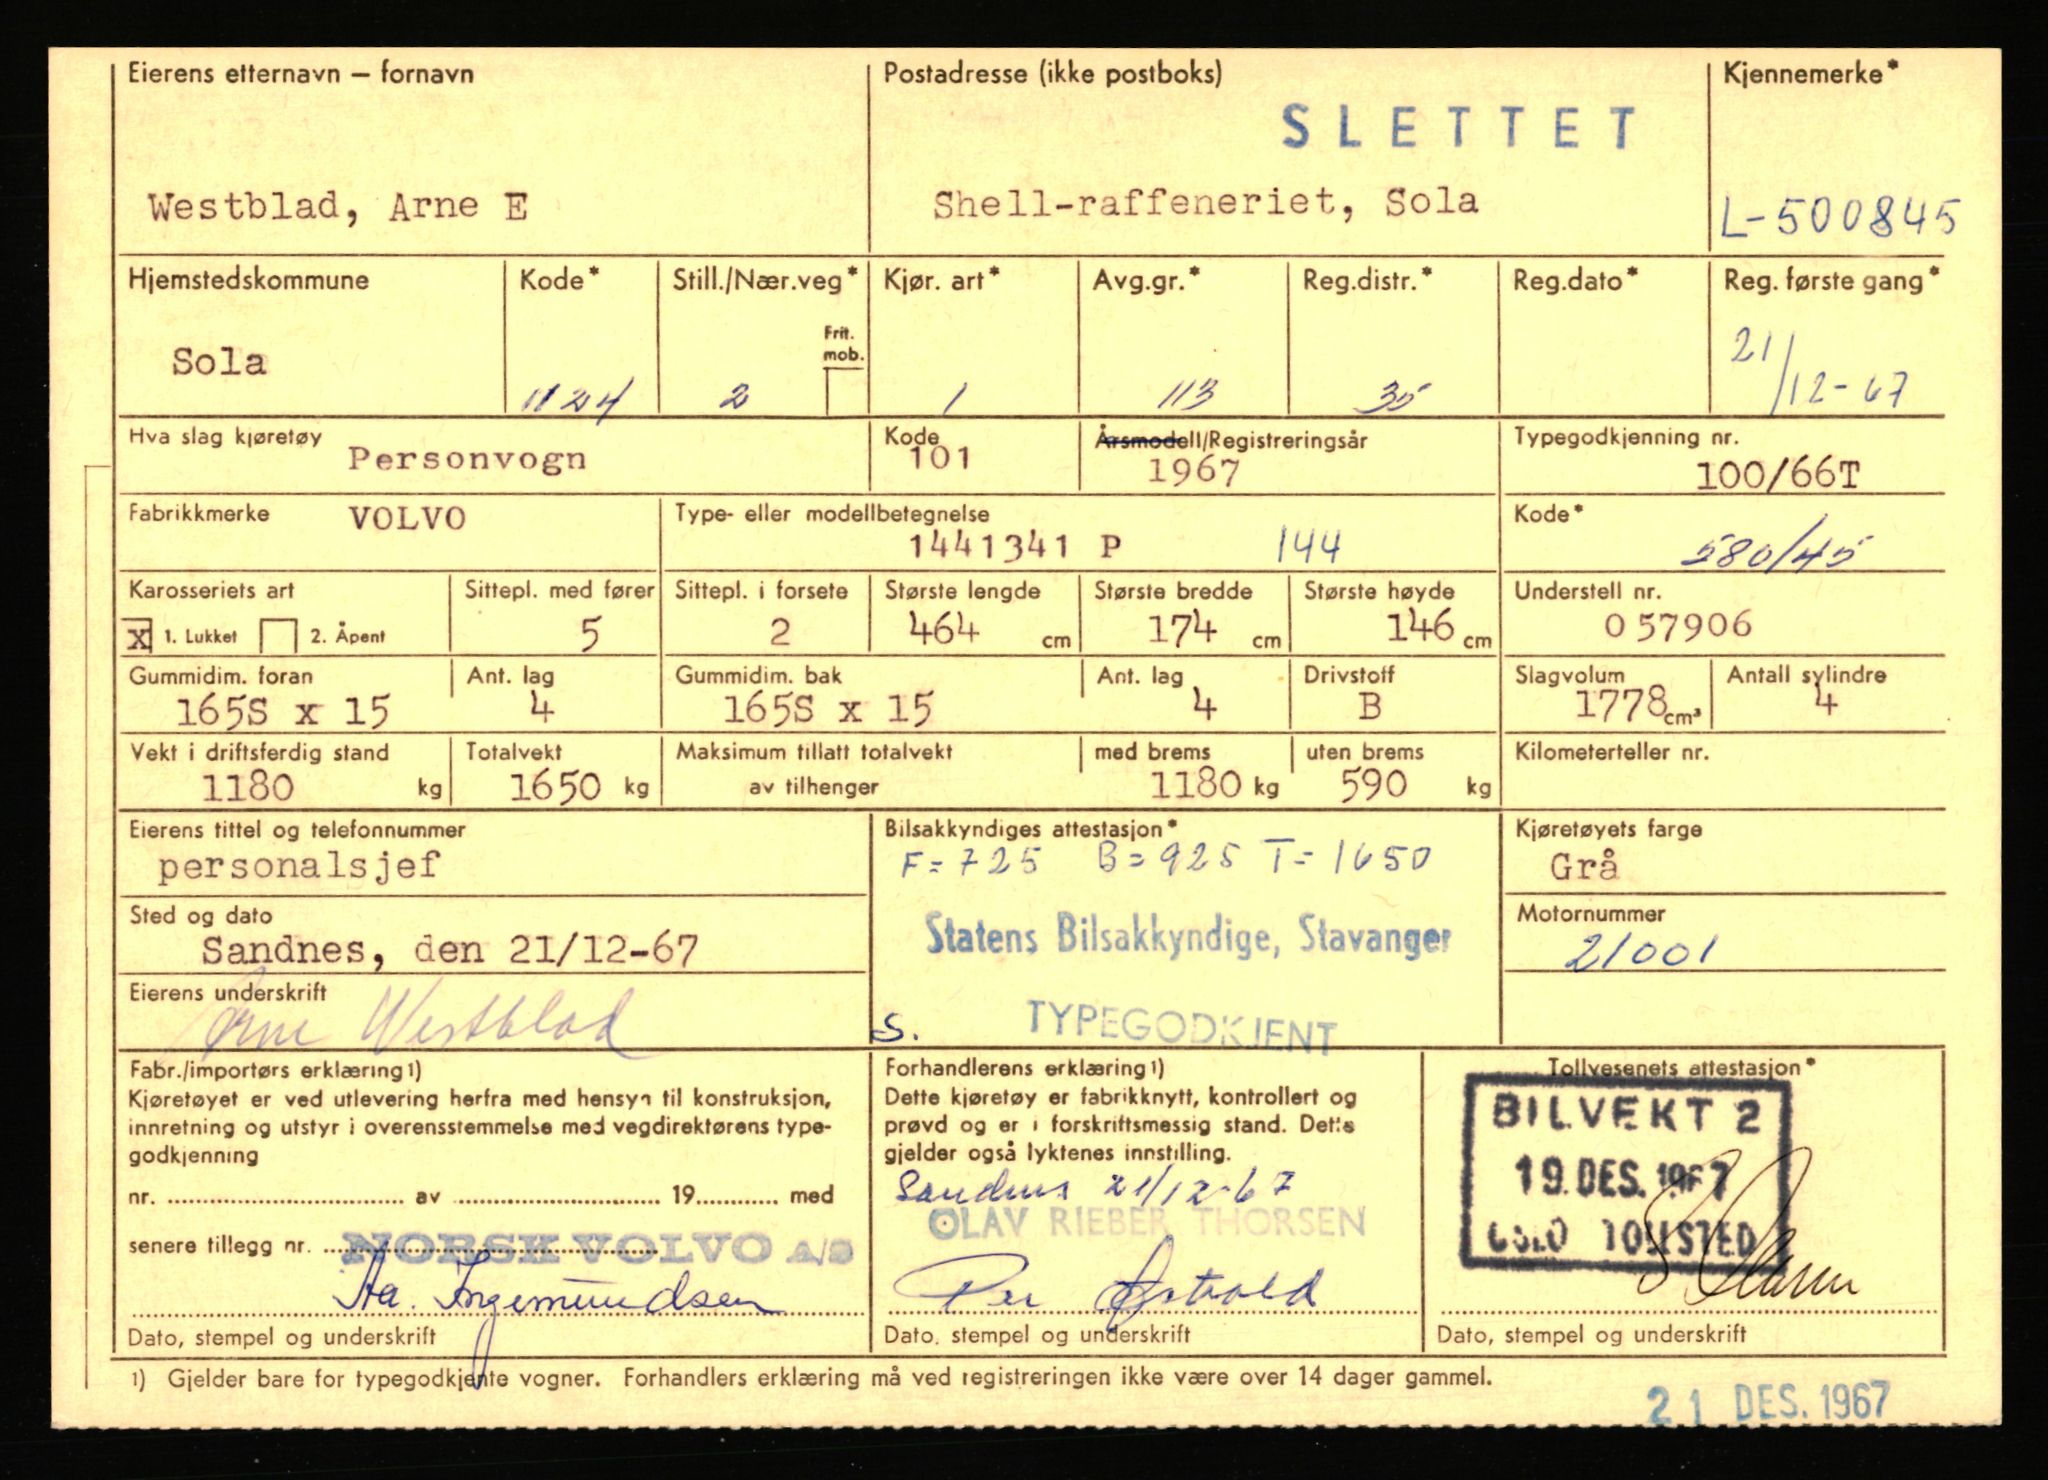 Eierens etternavn – fornavn
Postadresse (ikke postboks)
Kjennemerke*
SLETTET
Westblad, Arne E
Shell-raffeneriet, Sola
L-500845
Hjemstedskommune
Kode*
Still./Nær.veg*
Kjør. art*
Avg.gr.*
Reg.distr.*
Reg.dato*
Reg. første gang*
Frit. mob.
Sola
1124
2
1
113
35
21/12-67
Hva slag kjøretøy
Personvogn
Kode
101
Årsmodell/Registreringsår
1967
Typegodkjenning nr.
100/66T
Fabrikkmerke
VOLVO
Type- eller modellbetegnelse
1441341 P
144
Kode*
580/45
Karosseriets art
x 1. Lukket 2. Åpent
Sittepl. med fører
5
Sittepl. i forsete
2
Største lengde
464 cm
Største bredde
174 cm
Største høyde
146 cm
Understell nr.
057906
Gummidim. foran
165S x 15
Ant. lag
4
Gummidim. bak
165S x 15
Ant. lag
4
Drivstoff
B
Slagvolum
1778 cm³
Antall sylindre
4
Vekt i driftsferdig stand
1180 kg
Totalvekt
1650 kg
Maksimum tillatt totalvekt
av tilhenger
med brems
1180 kg
uten brems
590 kg
Kilometerteller nr.
Eierens tittel og telefonnummer
personalsjef
Bilsakkyndiges attestasjon*
F=725 B=925 T=1650
Kjøretøyets farge
Grå
Sted og dato
Sandnes, den 21/12-67
Statens Bilsakkyndige, Stavanger
Motornummer
21001
Eierens underskrift
Arne Westblad
S.
TYPEGODKJENT
Fabr./importørs erklæring 1)
Kjøretøyet er ved utlevering herfra med hensyn til konstruksjon,
innretning og utstyr i overensstemmelse med vegdirektørens type-
godkjenning
nr. av 19 med
senere tillegg nr.
NORSK VOLVO A/S
Aa. Ingemundsen
Dato, stempel og underskrift
Forhandlerens erklæring 1)
Dette kjøretøy er fabrikknytt, kontrollert og
prøvd og er i forskriftsmessig stand. Dette
gjelder også lyktenes innstilling.
Sandnes 21/12-67
OLAV RIEBER THORSEN
Per
Dato, stempel og underskrift
Tollvesenets attestasjon*
BILVEKT 2
19. DES. 1967
OSLO TOLLSTED
Dato, stempel og underskrift
1) Gjelder bare for typegodkjente vogner. Forhandlers erklæring må ved registreringen ikke være over 14 dager gammel.
21 DES. 1967